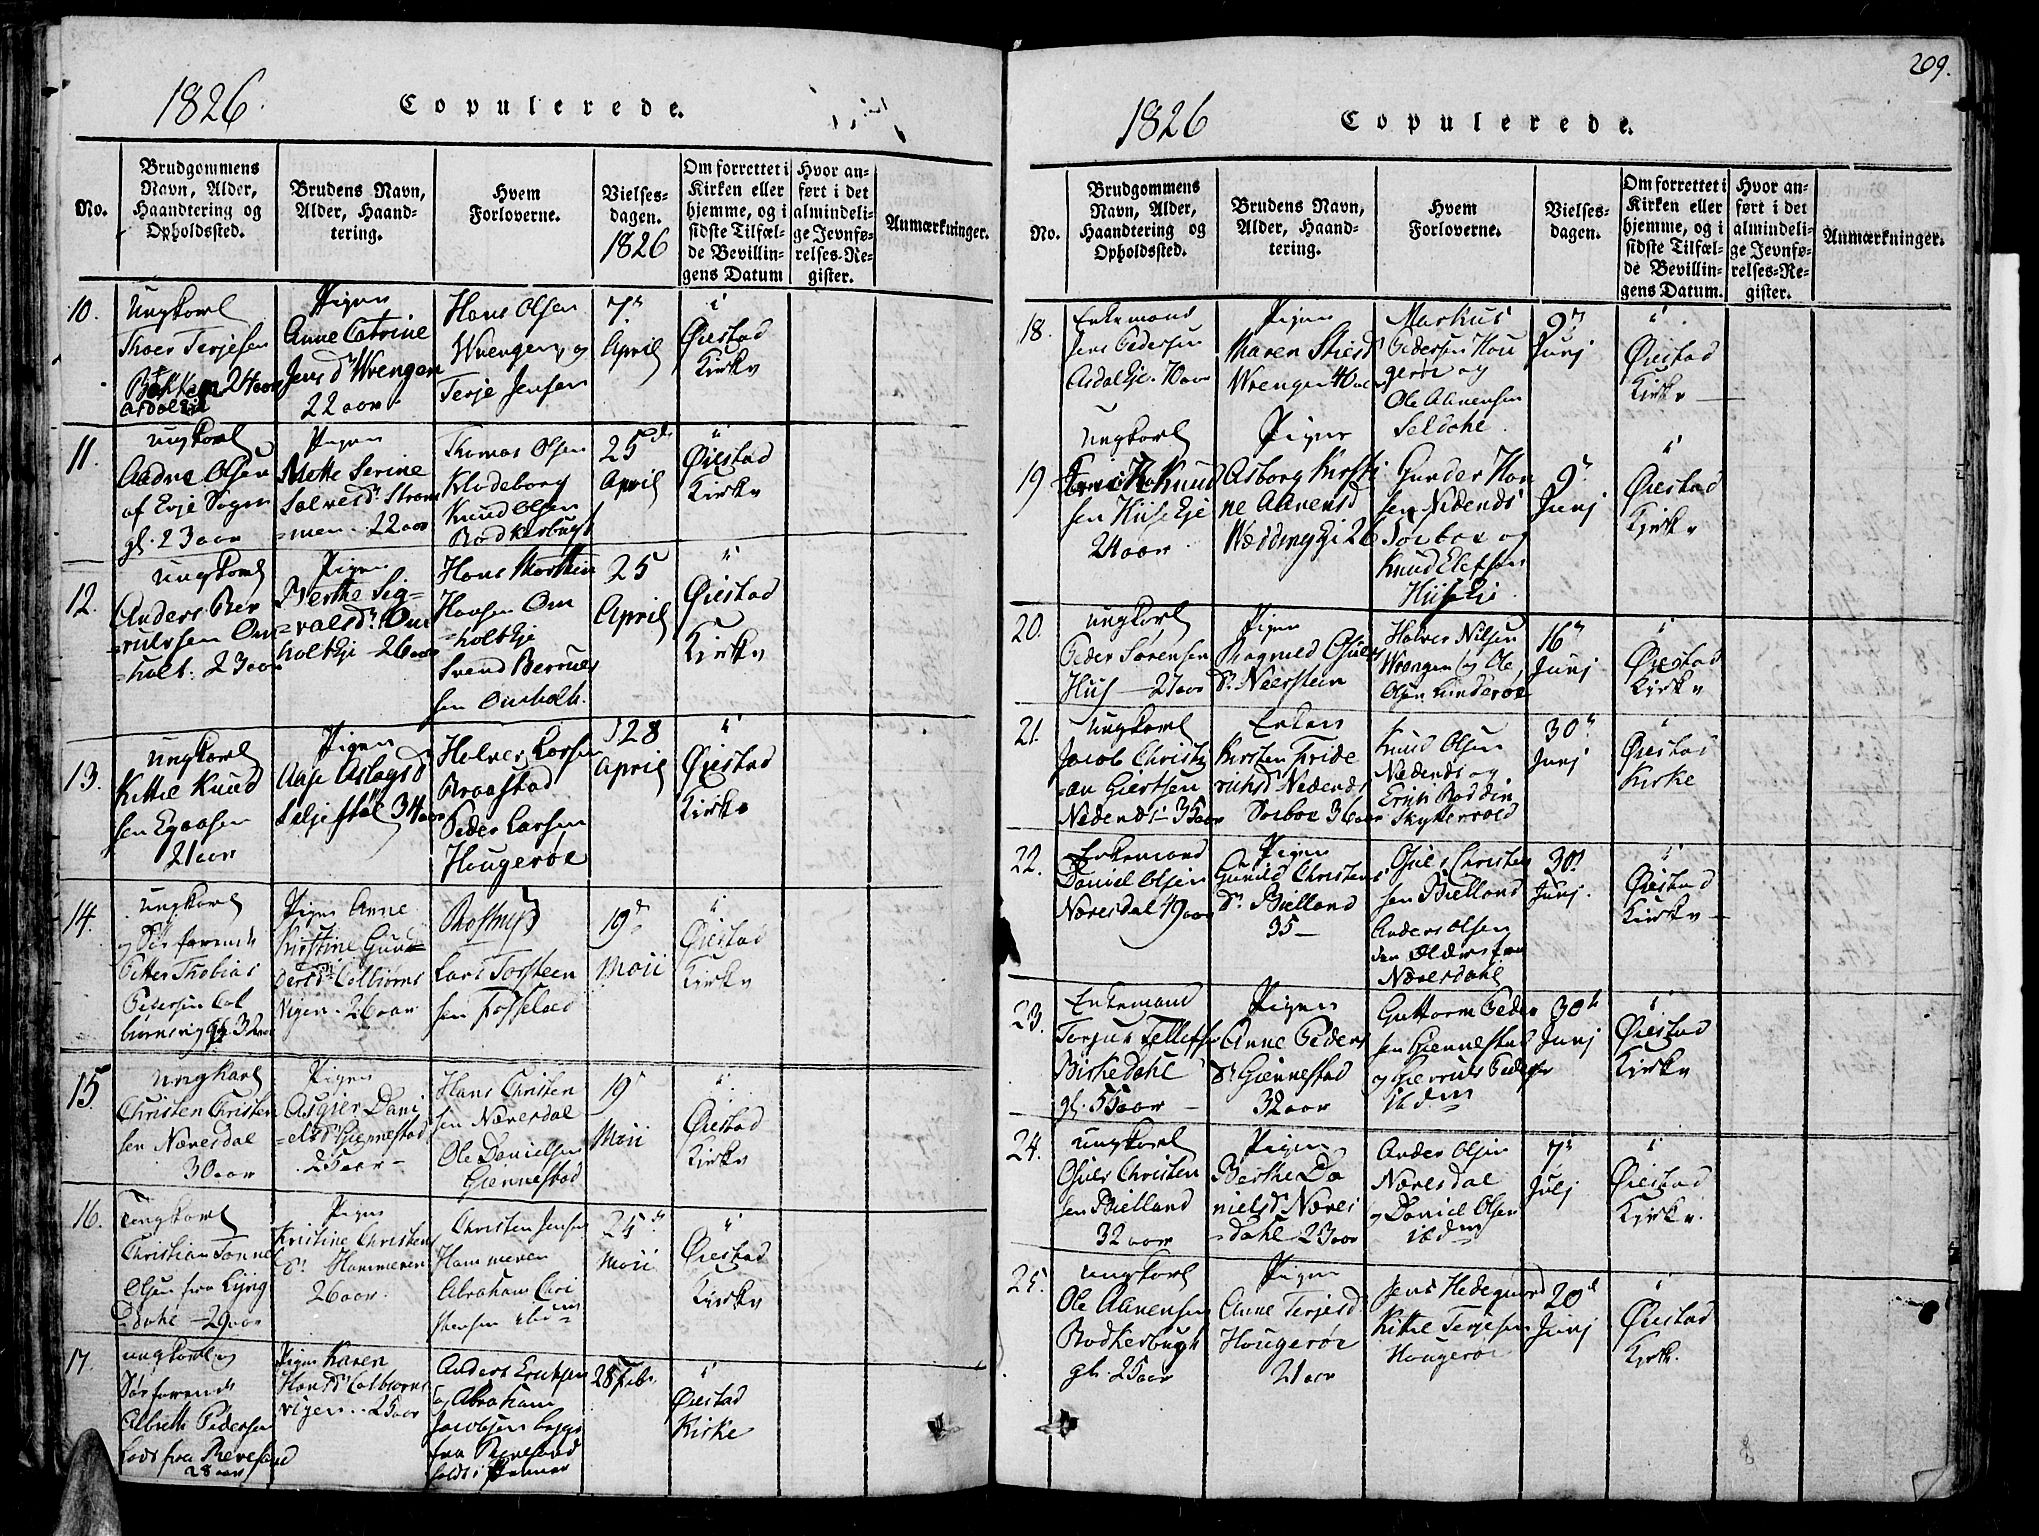 1826
Copulerede.
No.
Brudgommens
Navn, Alder,
Haandtering og
Opholdssted.
Brudens Navn,
Alder, Haand-
tering.
Hvem
Forloverne.
Vielses-
dagen.
1826
Om forrettet i
Kirken eller
hjemme, og i
sidste Tilfæl-
de Bevillin-
gens Datum
Hvor an-
ført i det
almindeli-
ge Jevnfø-
relses-Re-
gister.
Anmærkninger.
10.
Ungkarl
Thoer Terjesen
24 aar
Pigen
Anne Catrine
Jensdr Wrengen
22 aar
Hans Olsen
Wrengen og
Terje Jensen
7de
April
i
Øiestad
Kirke
11.
Ungkarl
Aadne Olsen
af Evje Sogn
gl. 23 aar
Pigen
Mette Serine
Salvesdr Strøm
=men 22 aar
Thomas Olsen
Klodeborg
Knud Olsen
25de
April
i
Øiestad
Kirke
12.
Ungkarl
Anders Ber
=rulvsen Om
=holt. 23 aar
Pigen
Berthe Sig-
=valsdr Om
holt Eje 26 aar
Hans
Hansen Om
=holt Eje
Svend Berrulv
sen Omholt.
25
April
i
Øiestad
Kirke
13.
Ungkarl
Kittil Knud
sen Egaasen
21 aar
Pigen
Aase Aslagsdr
34 aar
Halvor Larsen
Braastad
Peder Larsen
Hougerøe
28
April
i
Øiestad
Kirke
14.
Ungkarl
og Søefarende
Petter Thobias
Pedersen Col
børnsvig gl. 32 aar
Pigen Anne
Kirstine Gun
dersdr Colbiørns
vigen. 26 aar
Lars Torsteen
sen
19de
Maii
i
Øiestad
Kirke
15.
Ungkarl
Christen Christen
sen Næresdal
30 aar
Pigen
Asgier Dani
=elsdr Giennestad
25 aar
Hans Christen
sen Næresdal
Ole Danielsen
Giennestad
19de
Maii
i
Øiestad
Kirke
16.
Ungkarl
Christian Tønnes
Olsen fra Lyng
Dahl - 29 aar
Pigen
Kristine Christens
dr Hammeren
26 aar.
Christen Jensen
Hammeren
Abraham Chri
stensen ibidm
25de
Maii
i
Øiestad
Kirke
17.
Ungkarl og
Søefarende
Albreth Pedersen
Lods fra Revesand
28 aar
Pigen Karen
Hansdr Colbiørns
vigen. 25 aar
Anders Erichsen
og Abraham
Jacobsen begge
fra Revesand
28 Febr.
i
Øiestad
Kirke
209.
1826
Copulerede.
No.
Brudgommens
Navn, Alder,
Haandtering og
Opholdssted.
Brudens Navn,
Alder, Haand-
tering.
Hvem
Forloverne.
Vielses-
dagen.
Om forrettet i
Kirken eller
hjemme, og i
sidste Tilfæl-
de Bevillin-
gens Datum.
Hvor an-
ført i det
almindeli-
ge Jevnfø-
relses-Re-
gister.
Anmærkninger.
18.
Enkemand
Jens Pedersen
Asdal Eje. 70 aar
Pigen
Maren
Wrengen 40 aar
Markus
Pedersen Hou
gerøe og
Ole Aanensen
Seldahl.
9de
Junj
i
Øiestad
Kirke
19
Ungkarl
Knud
sen Huse Eje
24 aar
Pigen
Asborg Kirsti
ne Aanensdr
Weding Eje 26
Gunder Han
sen Nedenes
Sørboe og
Knud Elefsen
Huse Eje
9de
Junj
i
Øiestad
Kirke
20.
Ungkarl
Peder Sørensen
Hus - 27 aar
Pigen
Ragnild Osuls
dr Neersteen
Halvor Nilsen
Wrengen og Ole
Olsen Lunderøe
16de
Junj
i
Øiestad
Kirke
21.
Ungkarl
Jacob Christi
=an Giertsen
Nedenes 35 aar
Enken
Kirsten Fride
richsdr Nedenes
Sørboe 36 aar
Knud Olsen
Nedenes og
Erich Boddin
30de
Junj
i
Øiestad
Kirke
22.
Enkemand
Daniel Olsen
Næresdal 49 aar
Pigen
Gunild Christens
dr Bielland
35 -
Osul Christen
sen Bielland
Anders Olsen
den Ældere fra
Næresdahl
30de
Junj.
i
Øiestad
Kirke
23.
Enkemand
Terjus Tellefsen
Birkedahl
gl. 55 aar
Pigen
Anne Peders
dr Giennestad
32 aar
Guttorm Peder
sen Giennestad
og Pedersen
ibdm
30de
Junj
i
Øiestad
Kirke
24.
Ungkarl
Osul Christen
sen Bielland
32 aar
Pigen
Berthe Da
nielsdr Næres
=dahl 23 aar
Anders Olsen
Næresdal
og Daniel Olsen
ibdm
7de
Julj
i
Øiestad
Kirke.
25.
Ungkarl
Ole Aanensen
gl. 25 aar
Pigen
Anne Terjesdr
Hougerøe
21 aar
Jens Hedegaard
Kittil Terjesen
Hougerøe
20de
Junj
i
Øiestad
Kirke.